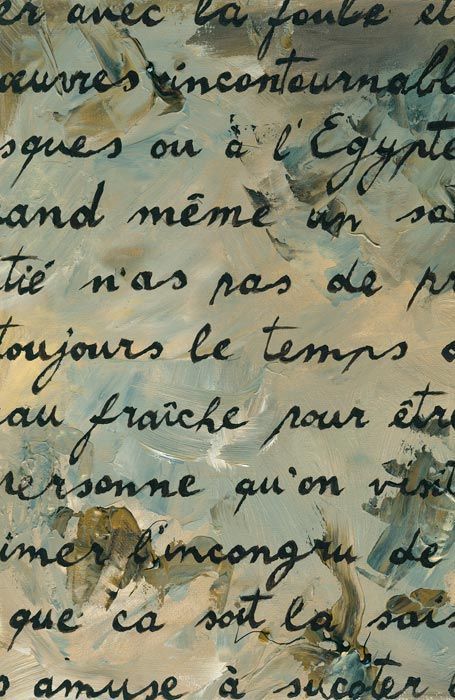 er avec la foule et
œuvres incontournabl
sques ou à l'Egypte
and même un sa
tié n'as pas de pr
toujours le temps
au fraîche pour être
personne qu'on visit
imer l'incongru de
que ca soit la sais
s amuse à